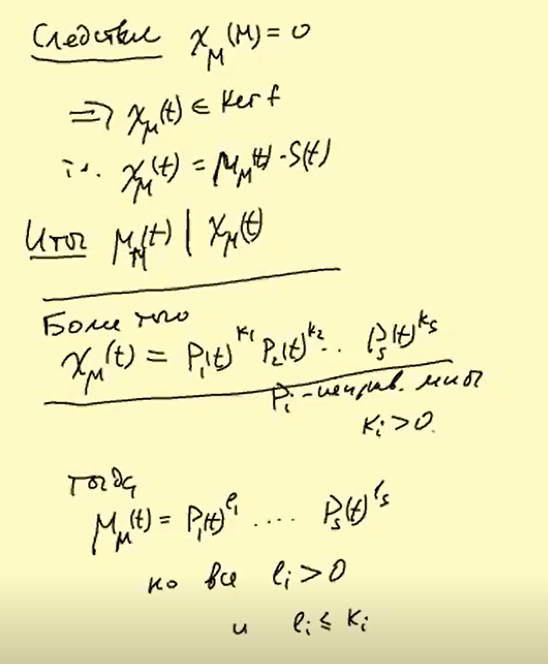 Следствие χ_M(M) = 0
⇒ χ_M(t) ∈ Ker f
∴ χ_M(t) = μ_M(t) · S(t)
Итог μ_M(t) | χ_M(t)
Более того
χ_M(t) = P₁(t)^k₁ P₂(t)^k₂ ... P_s(t)^k_s
P_i – неприв. мног
k_i > 0.
тогда
μ_M(t) = P₁(t)^ℓ₁ .... P_s(t)^ℓ_s
но все ℓ_i > 0
и ℓ_i ≤ k_i